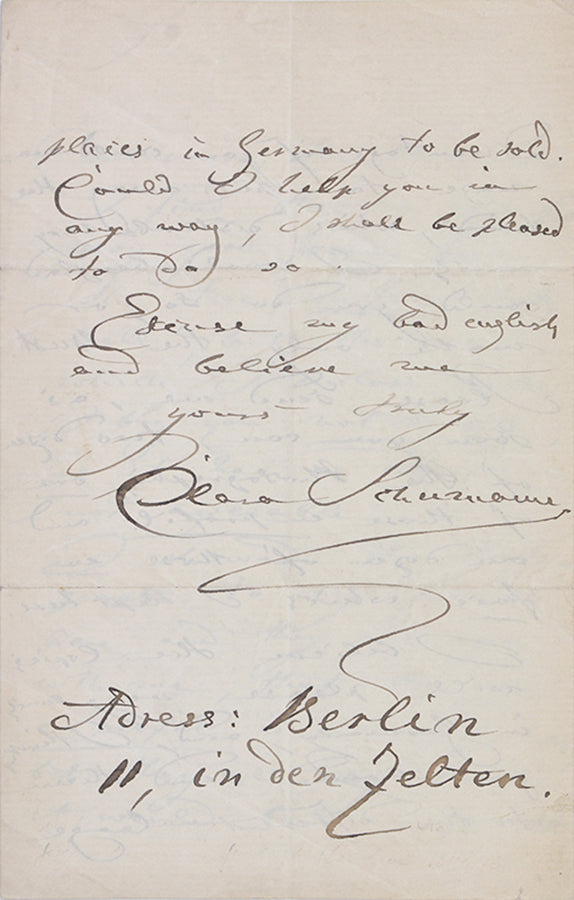 places in Germany to be sold.
Could I help you in
any way, I shall be pleased
to do so.
Excuse my bad english
and believe me
yours truly
Clara Schumann
Adress: Berlin
11, in den Zelten.